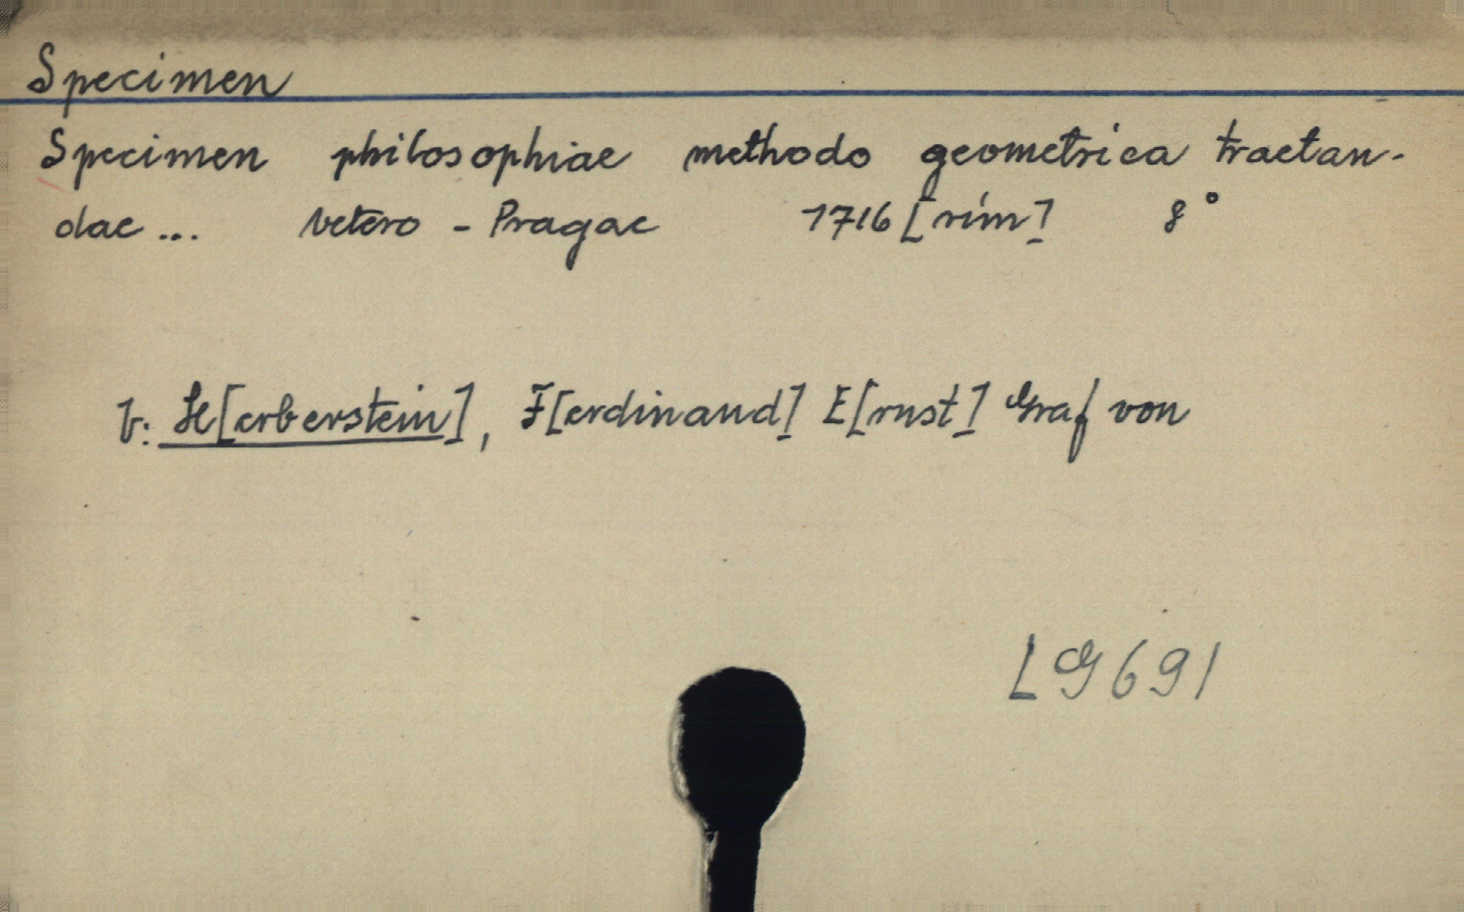 Specimen
Specimen philosophiae methodo geometrica tractan-
dae ... Vetero - Pragae 1716 [rím] 8°
v: H[erberstein], F[erdinand] E[rnst] Graf von
LG 691